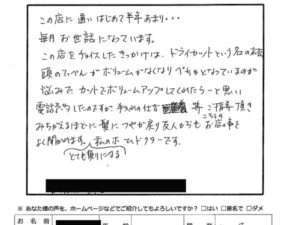 この店に通いはじめて半年あまり・・・
毎月お世話になっています。
この店をチョイスしたきっかけは、ドライカットという名のお店
頭のてっぺんがボリュームがなくなりぺちゃとなっているのが
悩みで カットでボリュームアップしてくれたら～と思い
電話予約したのですが 手入れの仕方 等ご指導頂き
みちがえるほどに髪につやが戻り友人からも こちらの お店の事を
よく聞かれます。私のホームドクターです。
とても頼りになる
※ あなた様の声を、ホームページなどでご紹介してもよろしいですか？ □はい □匿名で □ダメ
お名前